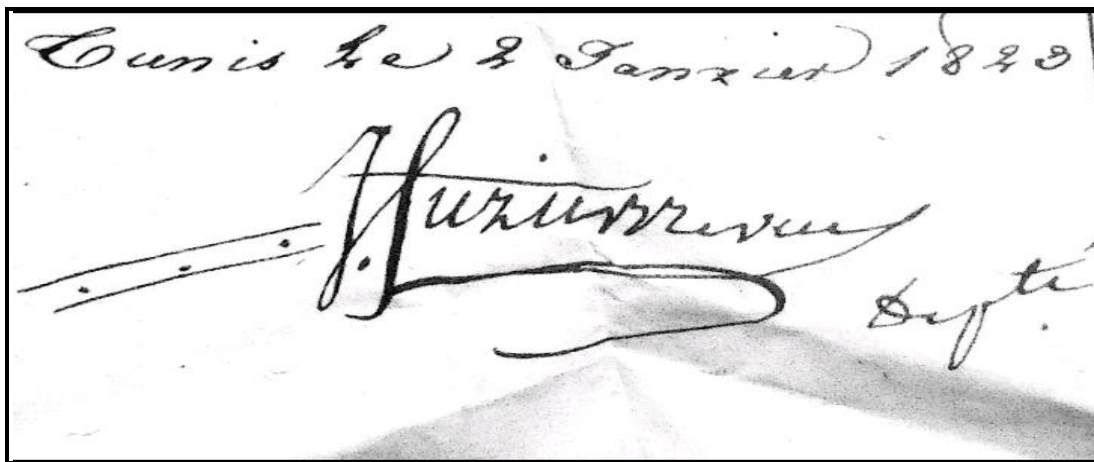 Tunis Le 2 Janvier 1823
Dep.té